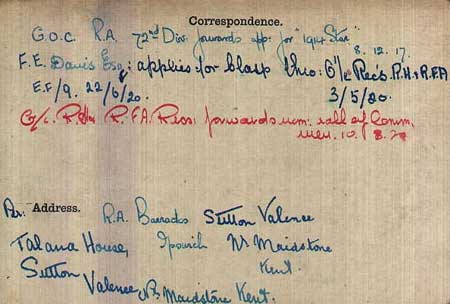 Correspondence.
G.O.C. R.A. 72nd Div. forwards app: for "1914 Star"
8.12.17.
F.E. Davis Esq: applies for Clasp thro: O i/c Recs. R.H. & R.F.A
E.F/9. 22/6/20. 3/5/20.
O i/c R.H. R.F.A. Recs: forwards nom: roll of Comm
10. 8. 20
Address.
R.A. Barracks Sutton Valence
Talana House, Ipswich Nr Maidstone
Sutton Kent.
Valence Nr Maidstone Kent.